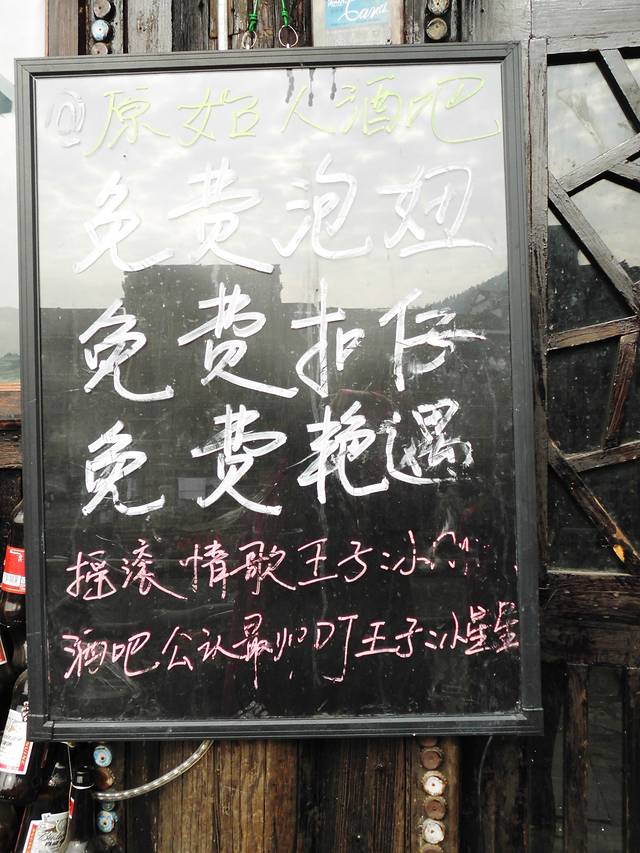 @原始人酒吧
免费泡妞
免费扣仔
免费艳遇
摇滚情歌王子冰
酒吧公认最帅DJ王子冰星星